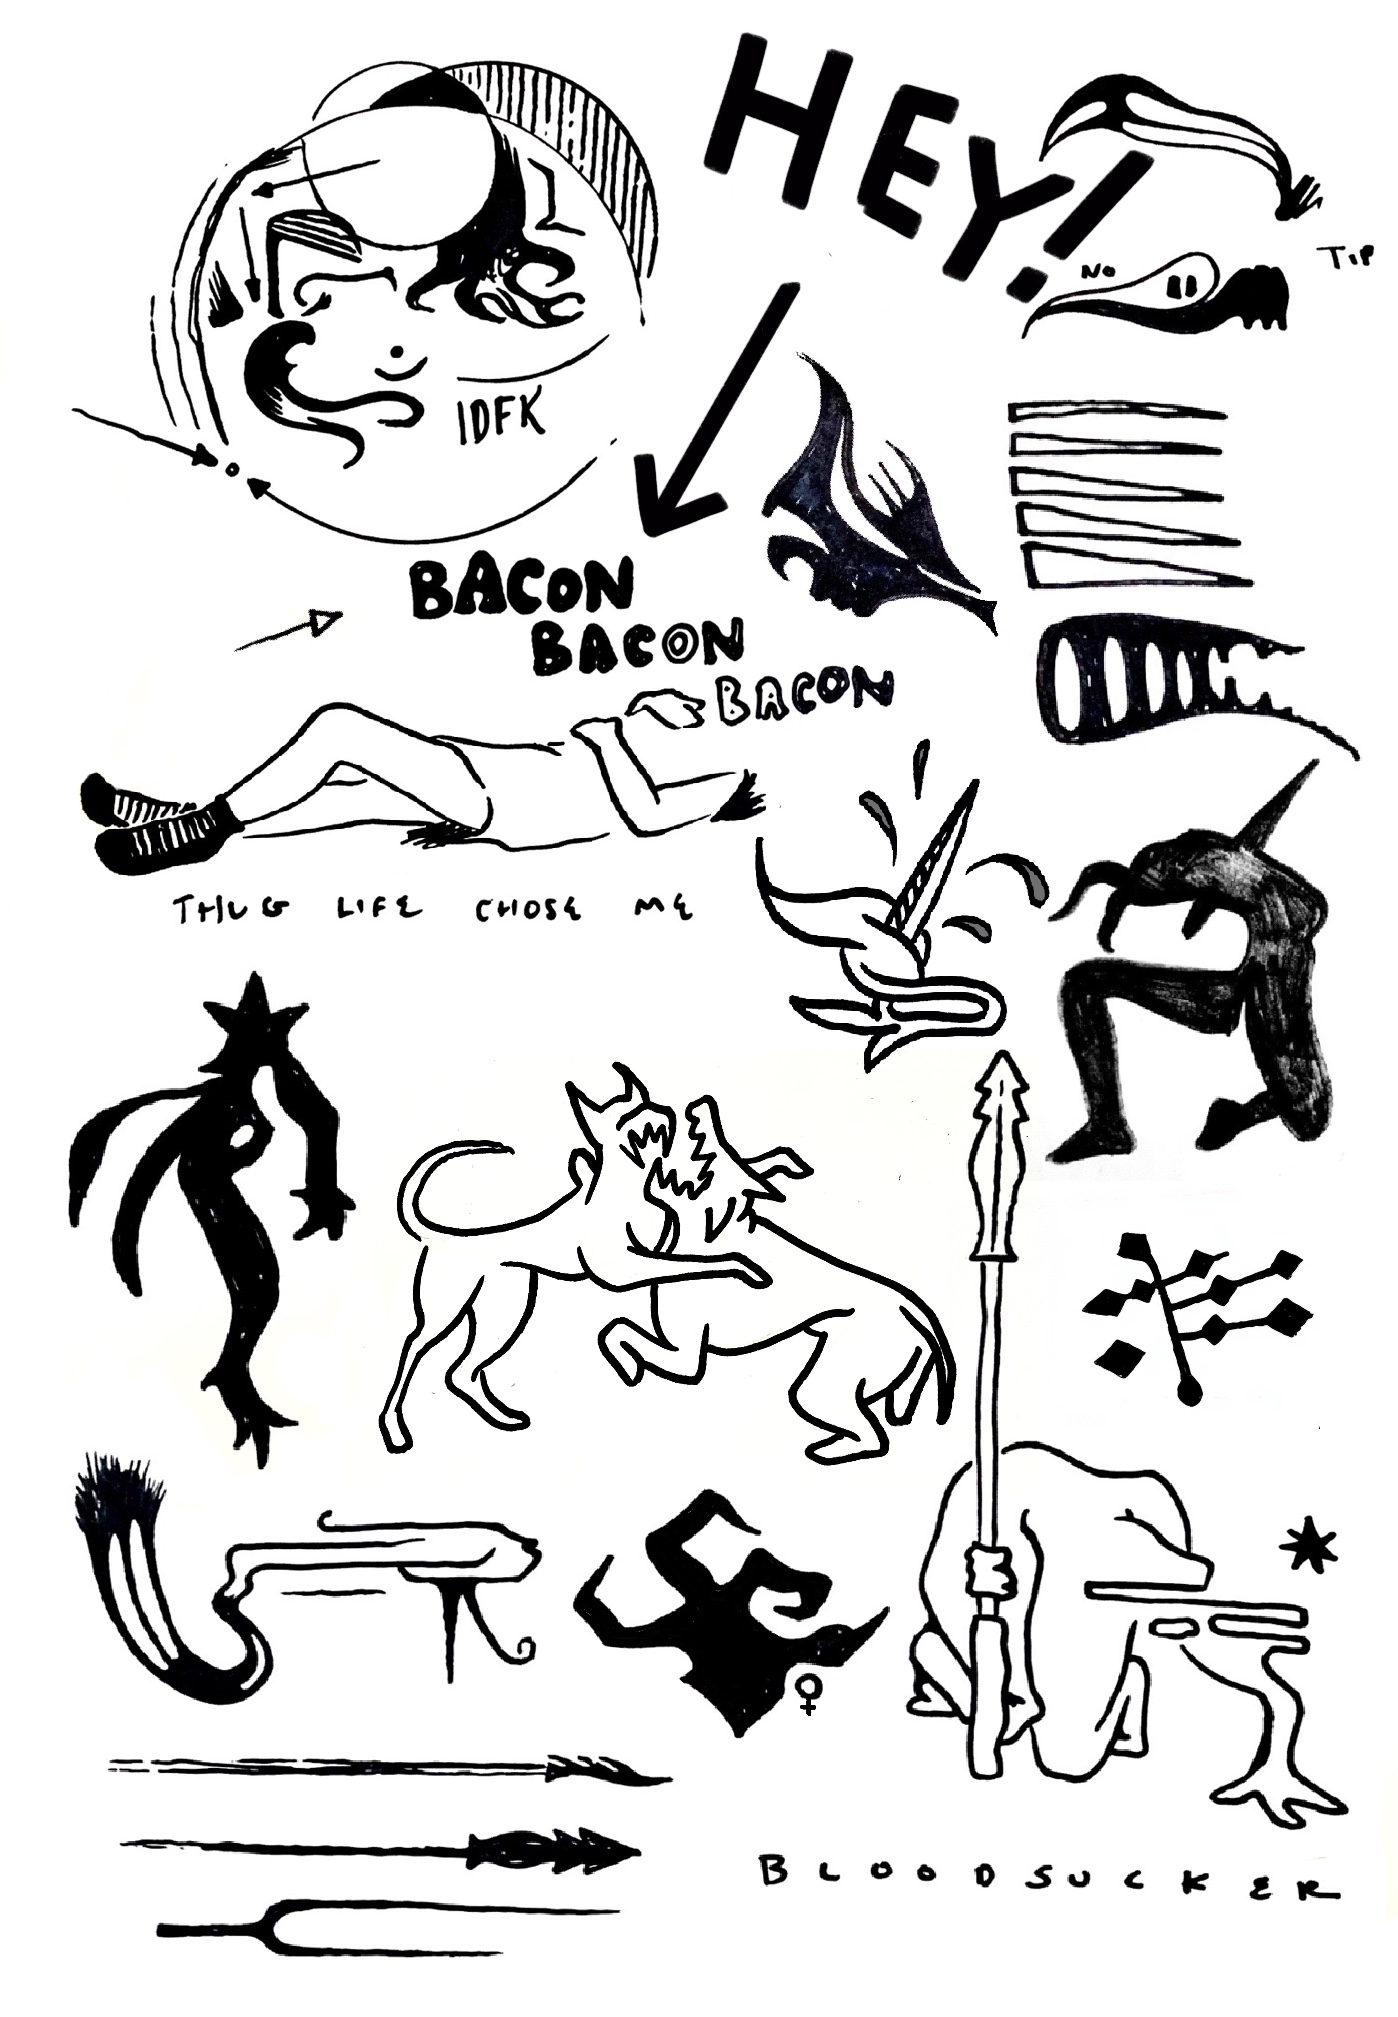 HEY!
TIP
NO
IDFK
BACON
BACON
BACON
THUG LIFE CHOSE ME
BLOODSUCKER